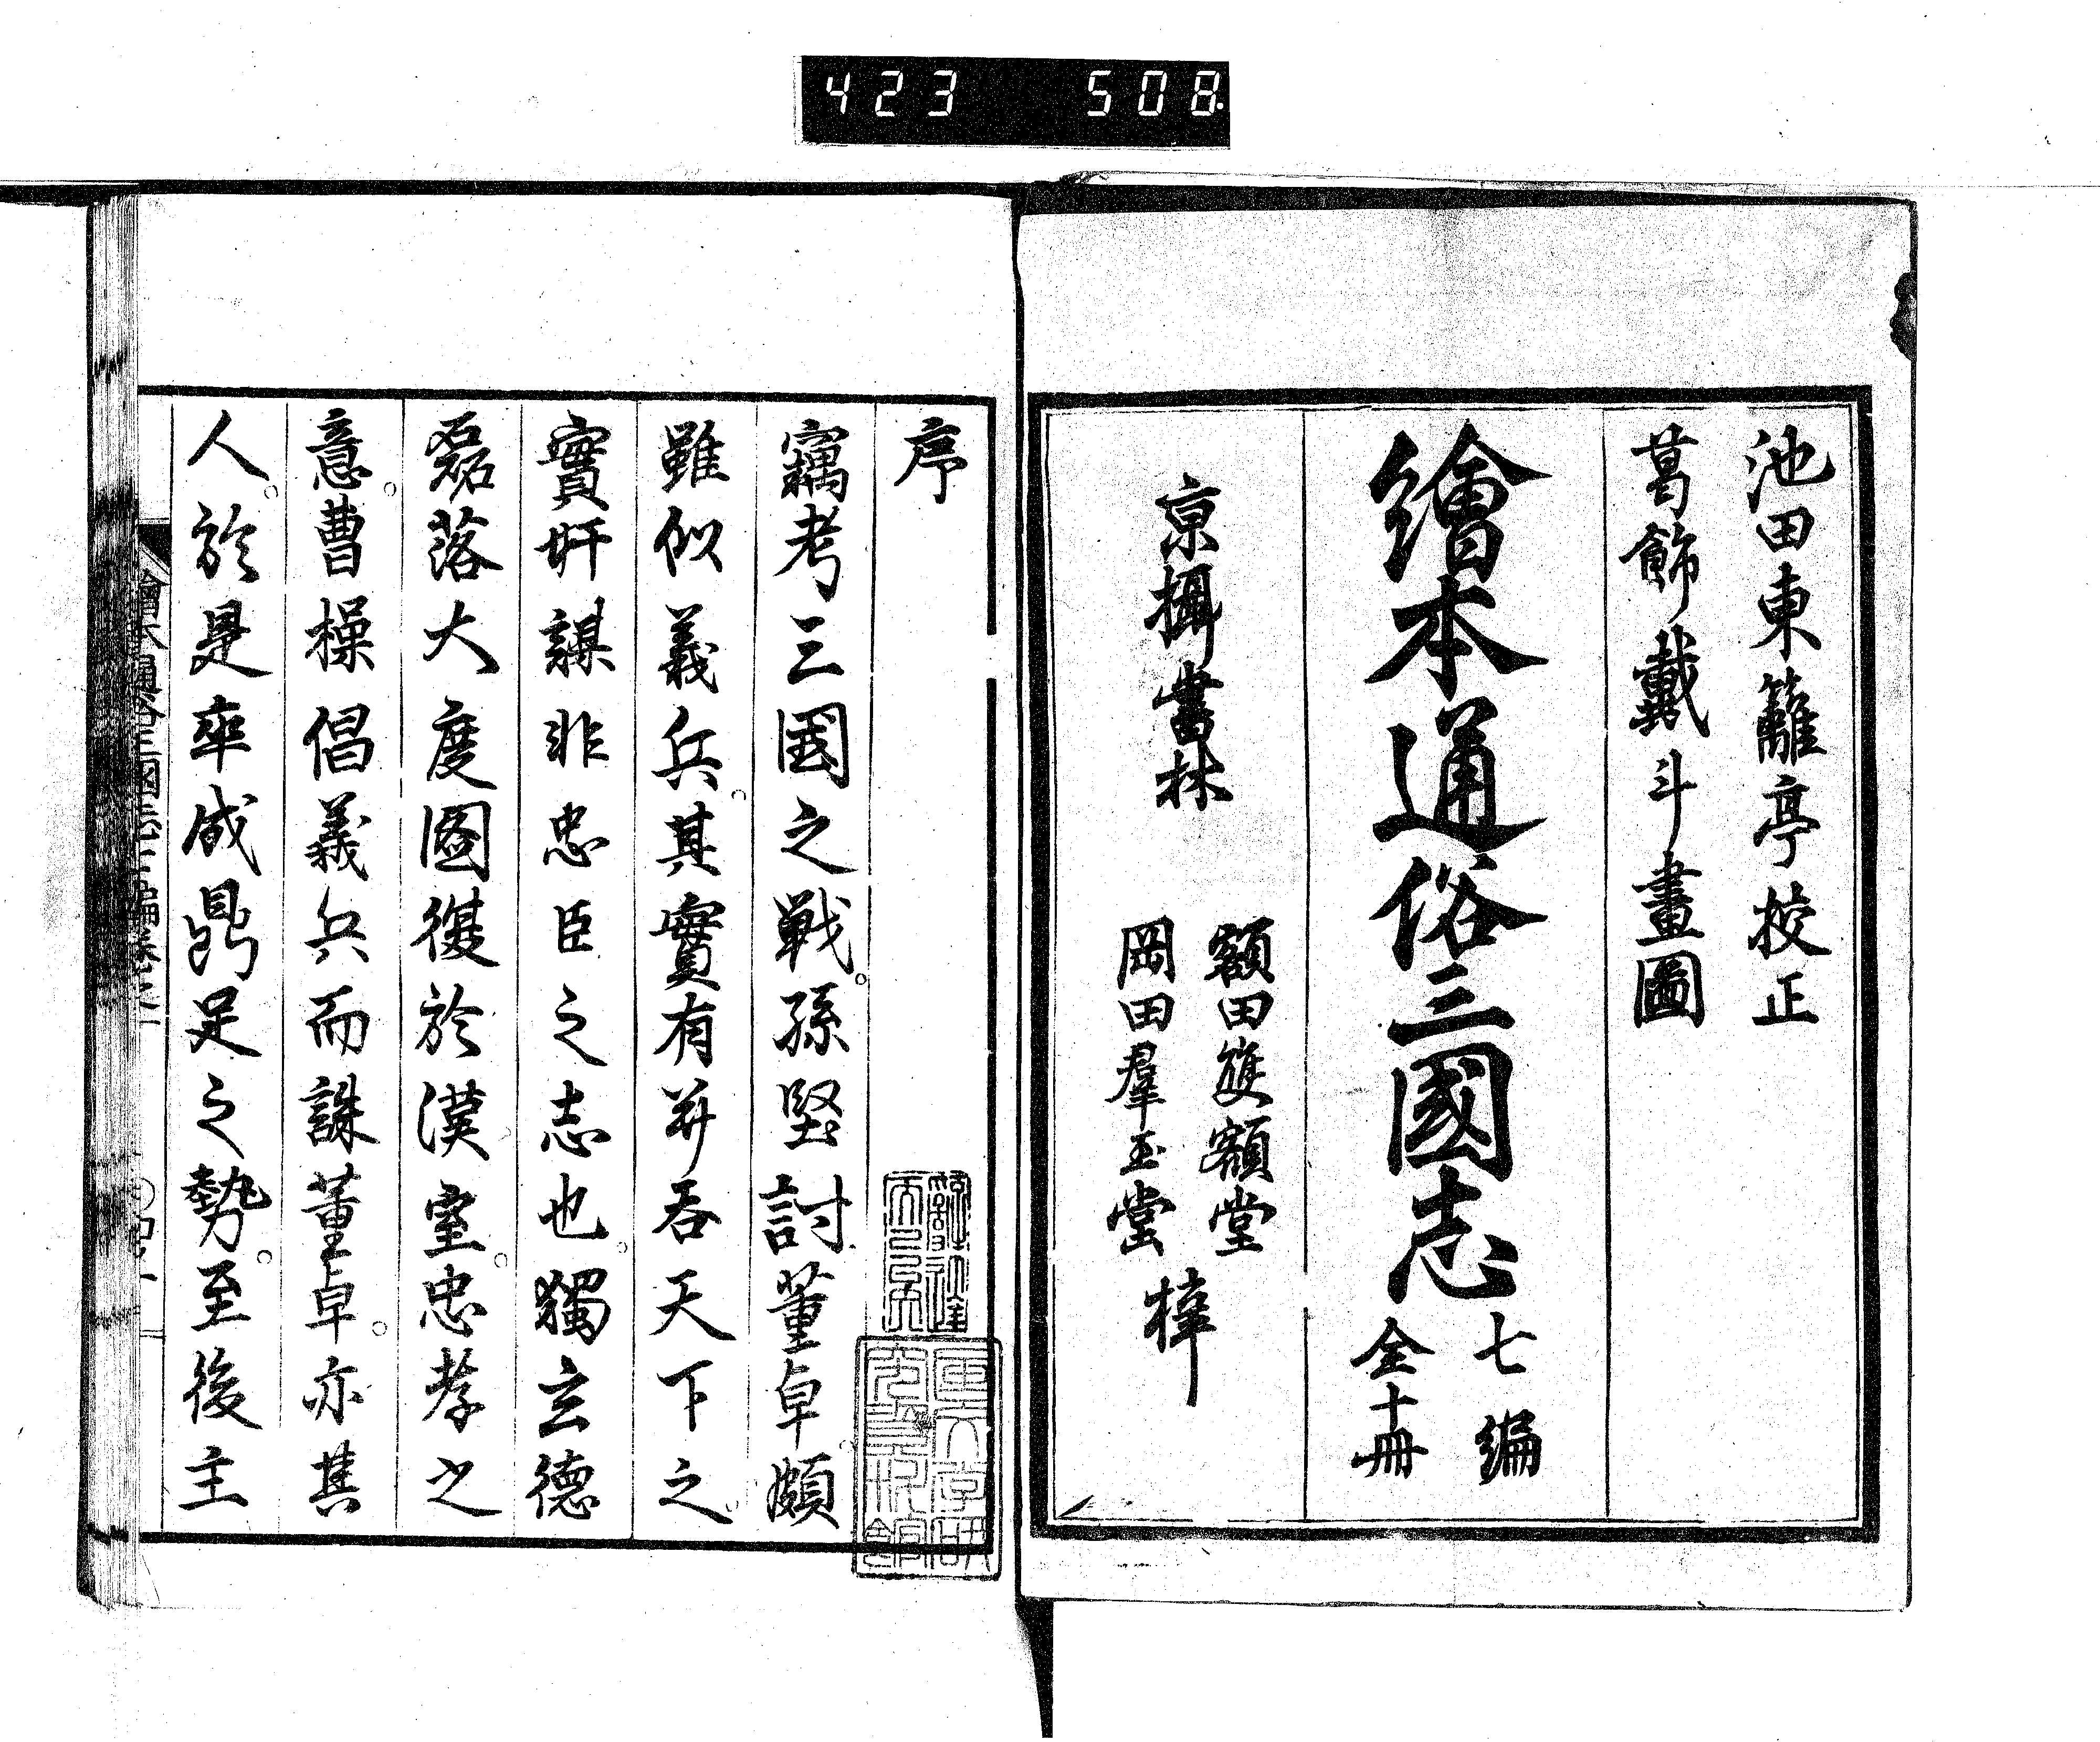 423 508
池田東籬亭校正
葛飾戴斗畫圖
繪本通俗三國志
七編
全十冊
京攝書林
額田雙額堂
岡田羣玉堂
梓
序
竊考三國之戰。孫堅討董卓頗
雖似義兵。其實有并吞天下之
實奸謀非忠臣之志也。獨玄德
磊落大度圖復於漢室。忠孝之
意。曹操倡義兵而誅董卓。亦其
人。於是卒成鼎足之勢。至後主